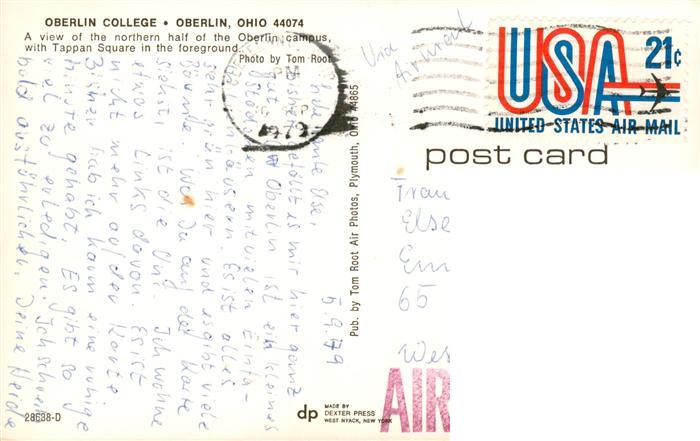 OBERLIN COLLEGE • OBERLIN, OHIO 44074
A view of the northern half of the Oberlin campus,
with Tappan Square in the foreground.
Photo by Tom Root
Via
Airmail
USA 21¢
UNITED STATES AIR MAIL
1979
post card
5.9.79
Else,
bisher gefällt es mir hier ganz
gut. Oberlin ist ein kleines
mit vielen Einfa-
Es ist alles
sehr grün hier und es gibt viele
Bäume. Wo Du auf der Karte
siehst, ist die Uni. Ich wohne
etwas links davon. Es ist
nicht mehr auf der Karte
hab ich kaum eine ruhige
Minute gehabt. Es gibt so
viel zu erledigen. Ich schreibe
bald ausführlicher. Deine Heide
Pub. by Tom Root Air Photos, Plymouth, Ohio 44865
Frau
Else
Em
65
Wes
AIR
28638-D
dp MADE BY
DEXTER PRESS
WEST NYACK, NEW YORK